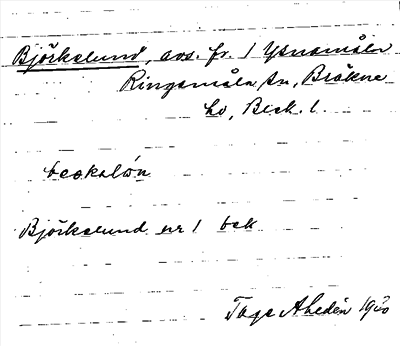 Björkelund, avs. fr. 1 Yxnamåla
Ringamåla sn, Bräkne
hd, Blek. l.
Björkelund nr 1 bek
Tage Ahldén 19